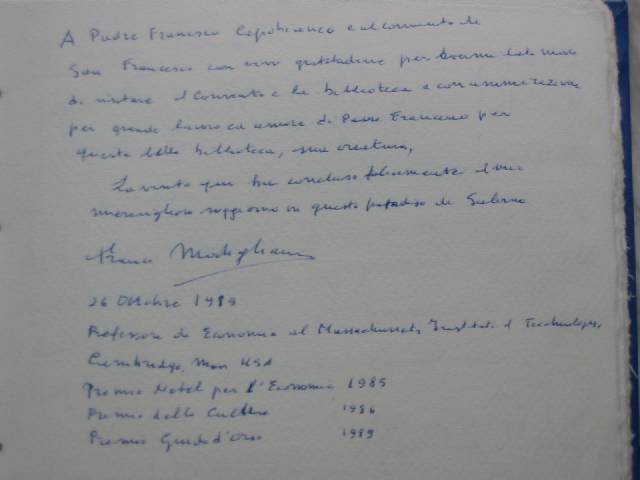 A Padre Francesco Capobianco e al convento di
San Francesco con viva gratitudine per avermi dato modo
di visitare il Convento e la biblioteca e con ammirazione
per grande lavoro ed amore di Padre Francesco per
questa bella biblioteca, sua creatura,
La visita qui ha concluso felicemente il mio
meraviglioso soggiorno in questo paradiso di Salerno
Franco Modigliani
26 Ottobre 1989
Professore di Economia al Massachusetts Institute of Technology,
Cambridge, Mass USA
Premio Nobel per l'Economia 1985
Premio della Cultura 1986
Premio Guido d'Orso 1989